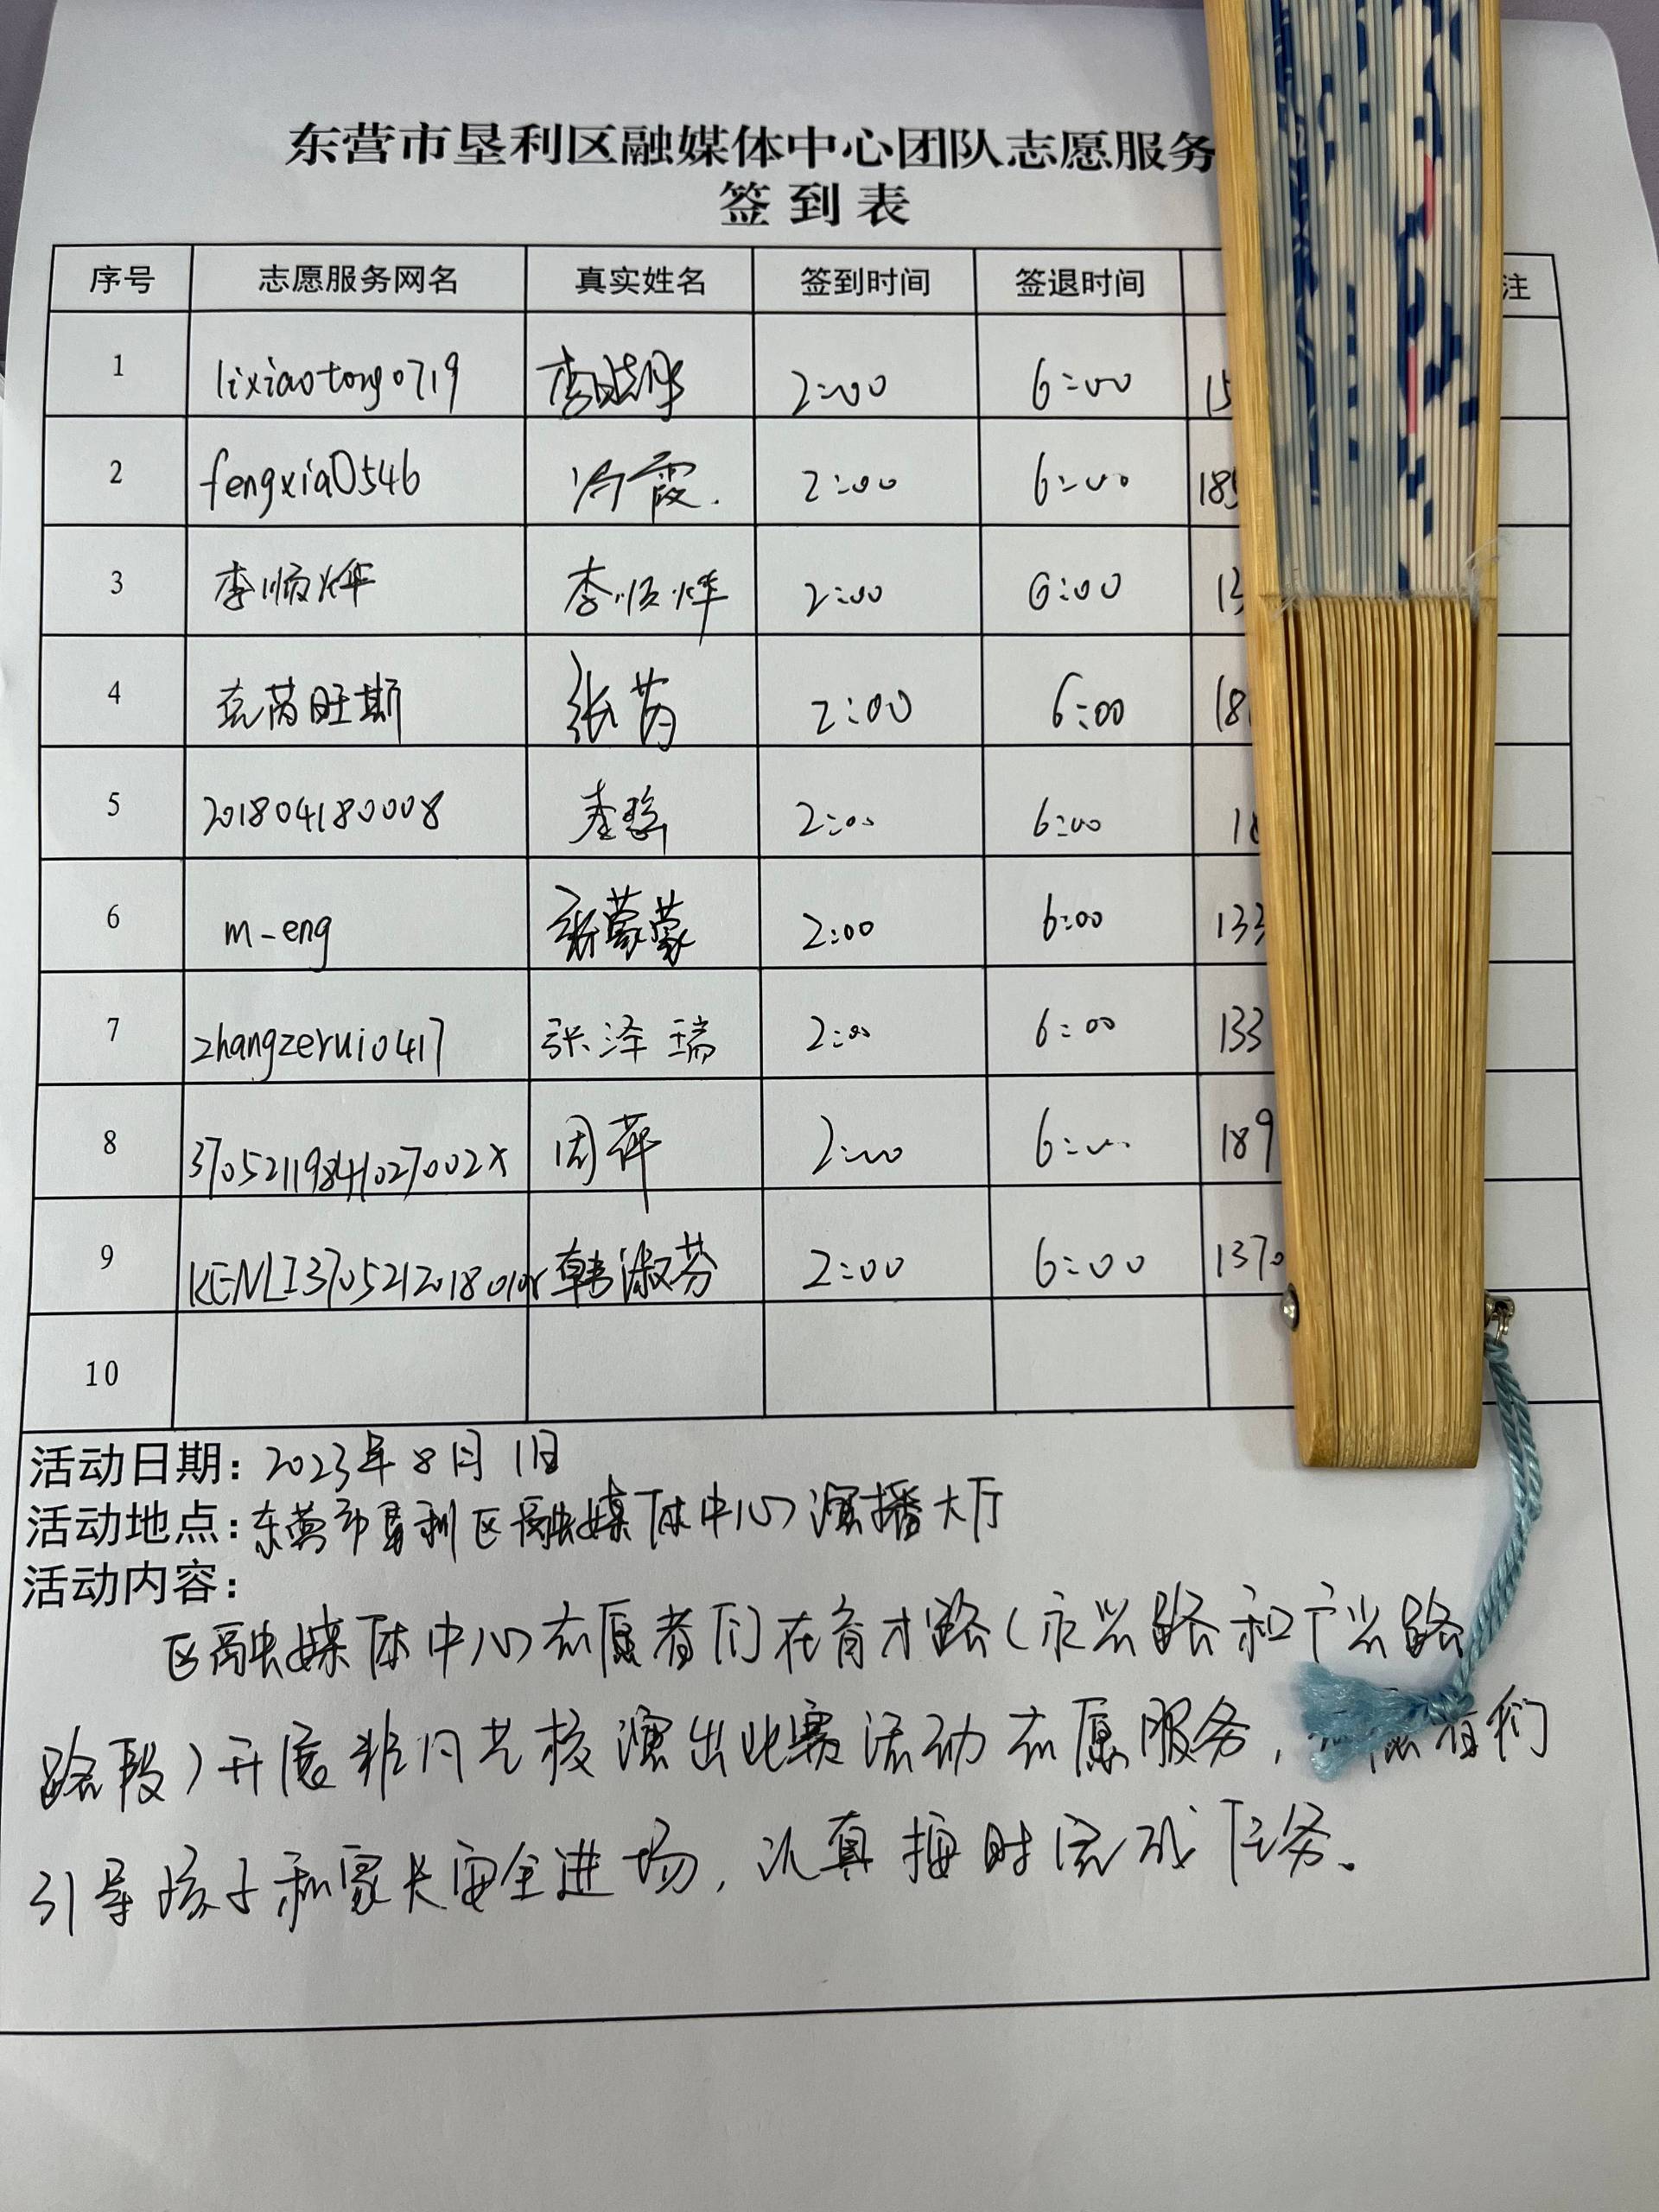 东营市垦利区融媒体中心团队志愿服务
签到表
序号 志愿服务网名 真实姓名 签到时间 签退时间 注
1 lixiaotong0719 李晓彤 2:00 6:00 15
2 fengxia0546 冯霞 2:00 6:00 185
3 李顺烨 李顺烨 2:00 6:00 13
4 克芮旺斯 张芮 2:00 6:00 18
5 201804180008 2:00 6:00 18
6 m-eng 张蒙蒙 2:00 6:00 133
7 zhangzerui0417 张泽瑞 2:00 6:00 133
8 37052119841027002X 周萍 2:00 6:00 189
9 韩淑芬 2:00 6:00 1370
10
活动日期：2023年8月1日
活动地点：东营市垦利区融媒体中心演播大厅
活动内容：
区融媒体中心志愿者们在育才路（永兴路和广兴路
路段）开展非凡艺校演出比赛活动志愿服务，们
引导孩子和家长安全进场，认真按时完成任务。